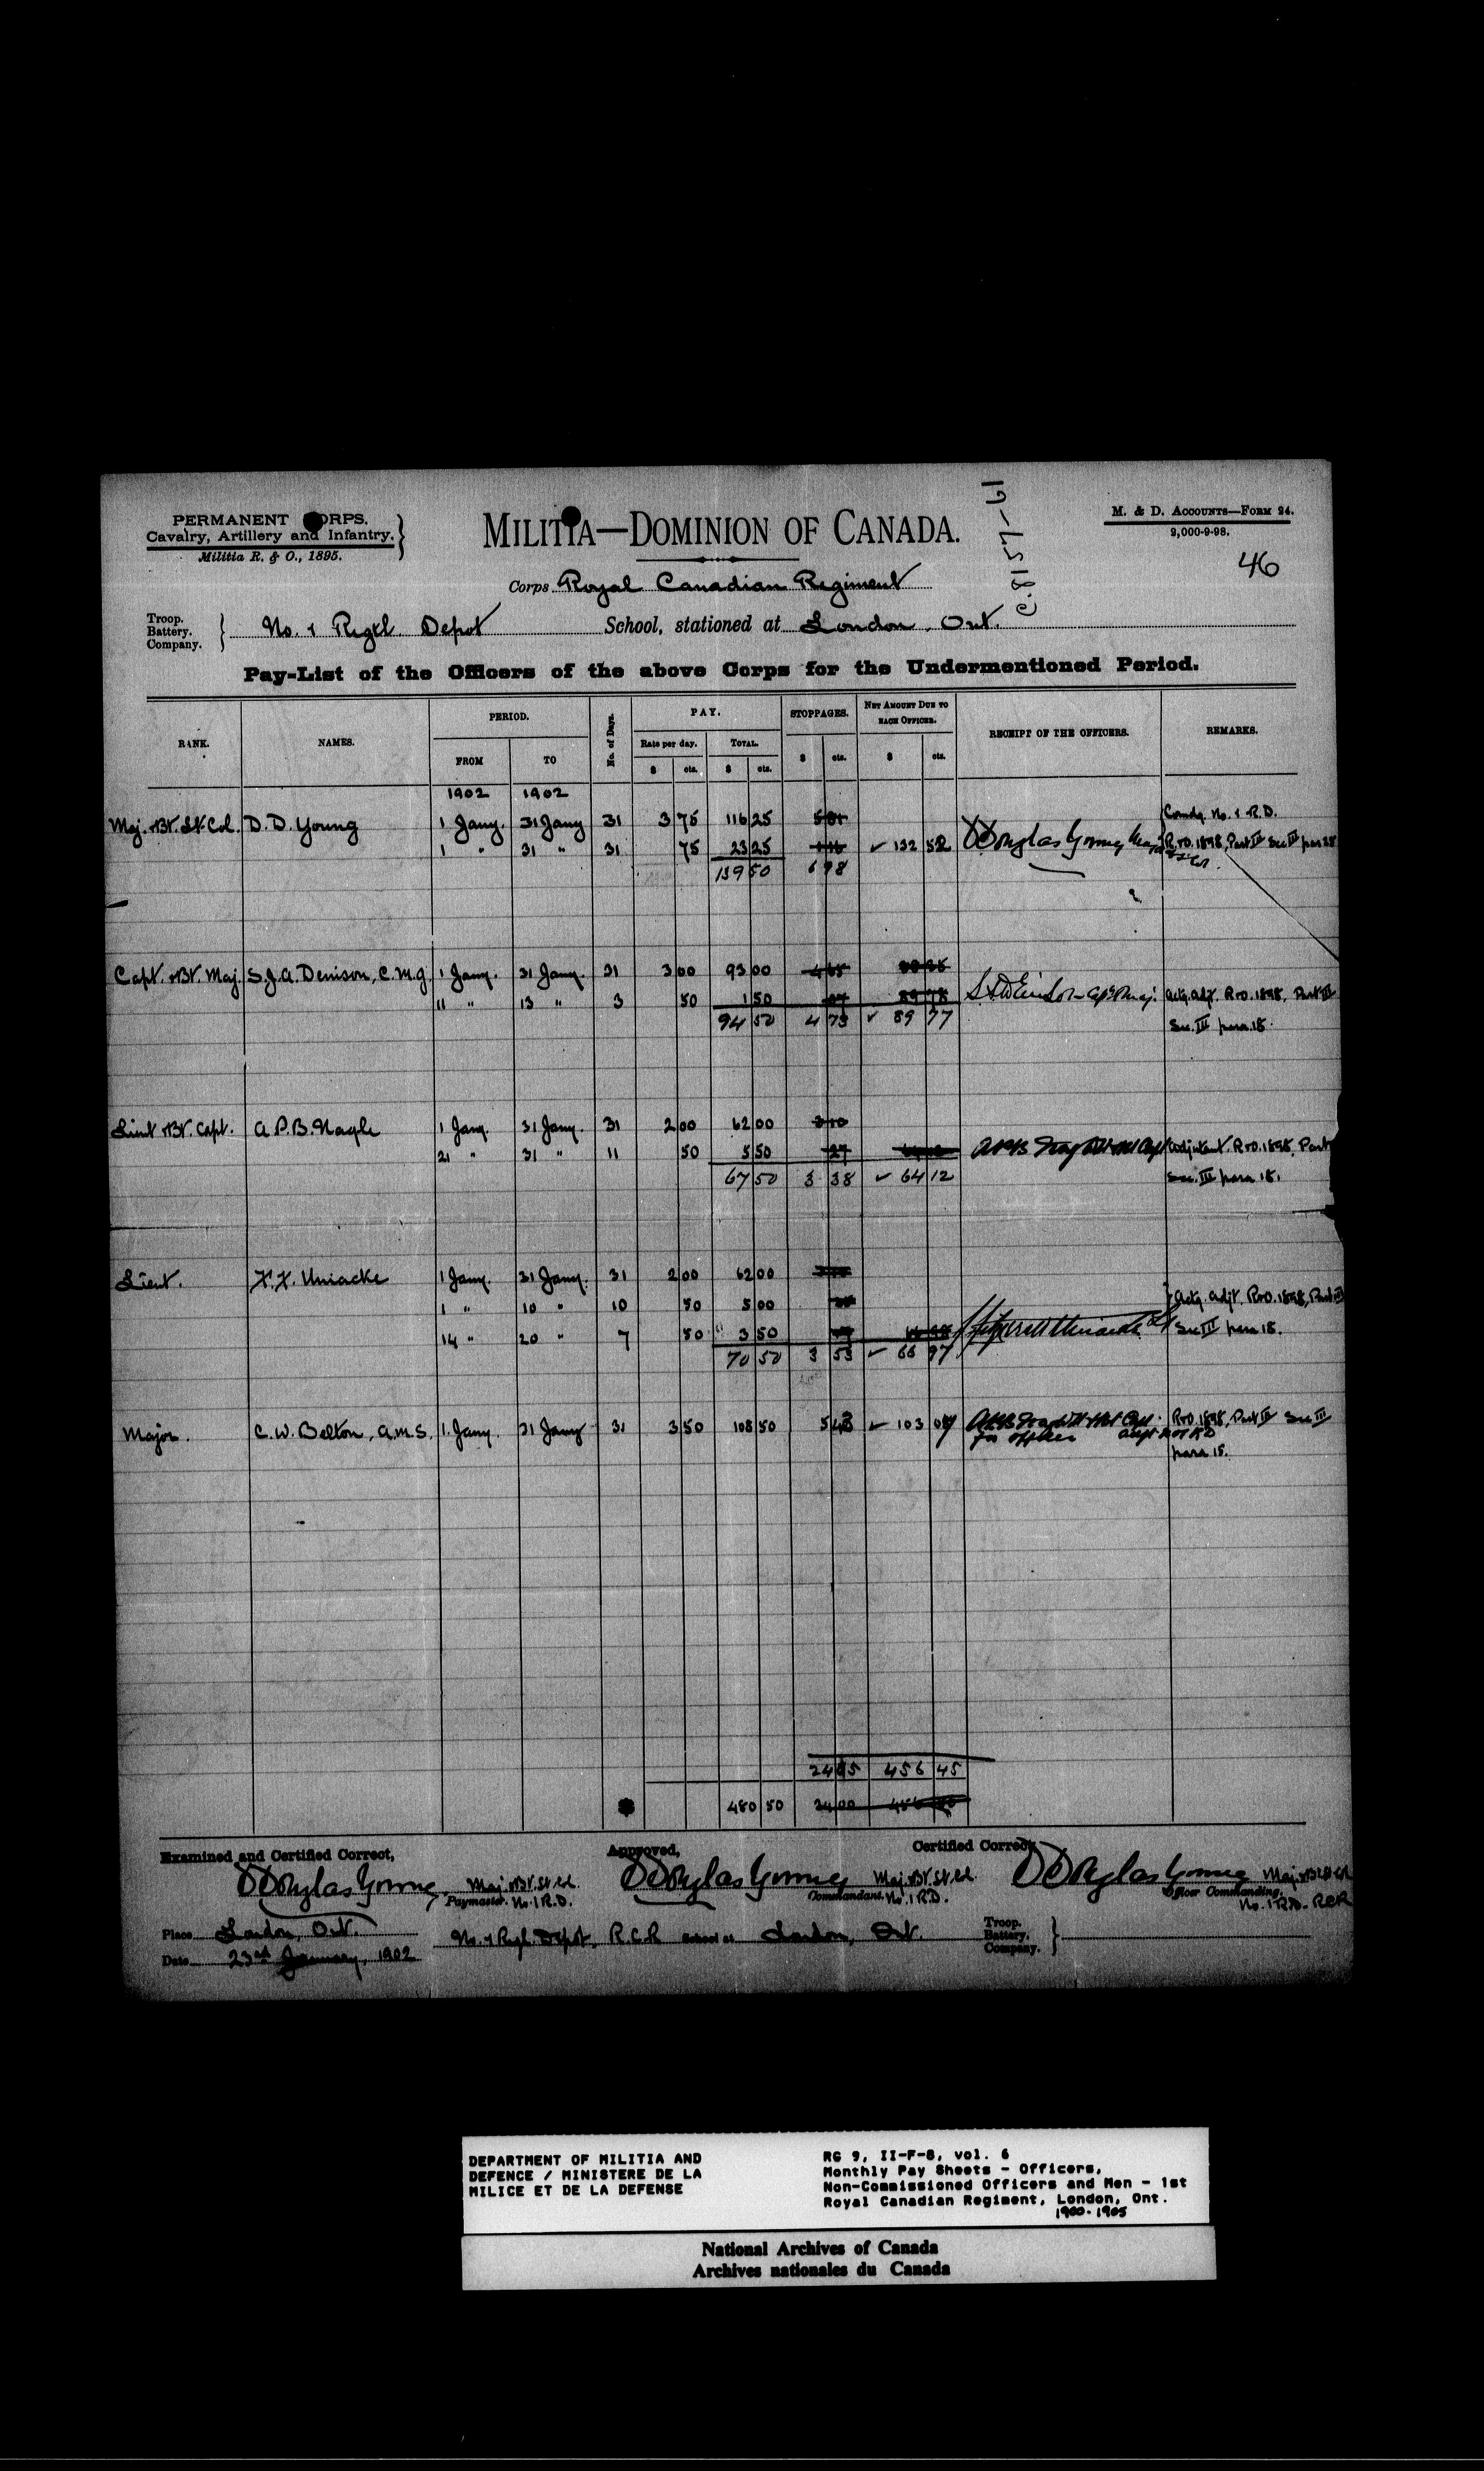 PERMANENT CORPS.
Cavalry, Artillery and Infantry.
Militia R. & O., 1895.
MILITIA—DOMINION OF CANADA.
C.8157-61
M. & D. ACCOUNTS—FORM 24.
2,000-9-98.
46
Corps Royal Canadian Regiment
Troop.
Battery.
Company.
No. 1 Regtl. Depot School, stationed at London, Ont.
Pay-List of the Officers of the above Corps for the Undermentioned Period.
RANK. NAMES. PERIOD. FROM TO No. of Days. PAY. Rate per day. $ cts. TOTAL. $ cts. STOPPAGES. $ cts. NET AMOUNT DUE TO EACH OFFICER. $ cts. RECEIPT OF THE OFFICERS. REMARKS.
1902 1902
Maj. & Bt. Lt. Col. D. D. Young 1 Jany. 31 Jany 31 3 75 116 25 Comdg. No. 1 R.D.
1 " 31 " 31 75 23 25 132 52 DDouglas Young R&O. 1898, Part IV Sec III para 28
139 50 6 98
Capt. & Bt. Maj. S.J.A. Denison, C.M.G. 1 Jany. 31 Jany. 31 3 00 93 00
11 " 13 " 3 50 1 50 Actg. Adjt. R&O. 1898, Part IV
94 50 4 73 89 77 Sec. III para. 18.
Lieut & Bt. Capt. A.P.B. Nagle 1 Jany. 31 Jany. 31 2 00 62 00
21 " 31 " 11 50 5 50 Adjutant. R&O. 1898, Part
67 50 3 38 64 12 Sec. III para 18.
Lieut. F.F. Uniacke 1 Jany. 31 Jany. 31 2 00 62 00
1 " 10 " 10 50 5 00 Actg. Adjt. R&O. 1898, Part IV
14 " 20 " 7 50 3 50 Sec III para 18.
70 50 3 53 66 97
Major. C.W. Belton, A.M.S. 1 Jany. 31 Jany 31 3 50 108 50 5 43 103 07 R&O. 1898, Part IV Sec III
for officer
para 15.
24 05 456 45
480 50 24 00
Examined and Certified Correct, Approved, Certified Correct,
DDouglas Young Maj. & Bt. Lt. Col DDouglas Young Maj. & Bt. Lt. Col DDouglas Young Maj. & Bt Lt Col
Paymaster. No. 1 R.D. Commandant. No. 1 R.D. Officer Commanding.
No. 1 R.D. R.C.R
Place London, Ont. No. 1 Regl. Depot, R.C.R School at London, Ont. Troop.
Battery.
Company.
Date 23rd January, 1902
DEPARTMENT OF MILITIA AND
DEFENCE / MINISTERE DE LA
MILICE ET DE LA DEFENSE
RG 9, II-F-8, vol. 6
Monthly Pay Sheets - Officers,
Non-Commissioned Officers and Men - 1st
Royal Canadian Regiment, London, Ont.
1900-1905
National Archives of Canada
Archives nationales du Canada